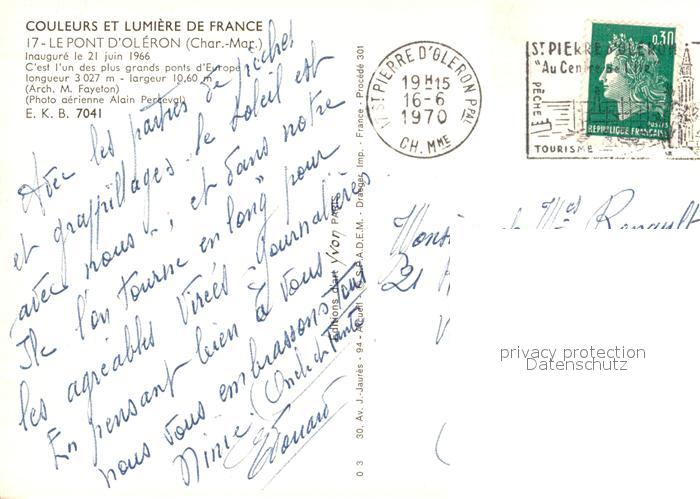 COULEURS ET LUMIÈRE DE FRANCE
17 - LE PONT D'OLÉRON (Char.-Mar.)
Inauguré le 21 juin 1966
C'est l'un des plus grands ponts d'Europe
longueur 3 027 m - largeur 10,60 m
(Arch. M. Fayeton)
(Photo aérienne Alain Perceval)
E. K. B. 7041
Avec les parties de pêches
et grappillages le soleil est
avec nous ; et dans notre
Ile l'on tourne en long pour
les agréables virées journalières
En pensant bien à vous
nous vous embrassons tous
Ninie (Oncle de Tante
Edouard
Editions d'art Yvon PARIS
03 30, Av. J.-Jaurès - 94 - Arcueil - R.S.P.A.D.E.M. - Draeger, Imp. - France - Procédé 301
17 ST PIERRE D'OLERON PPAL
19H15
16-6
1970
CH. MME
ST PIERRE D'OLERON
"Au Centre de l'Ile"
PÊCHE
TOURISME
0,30
POSTES
REPUBLIQUE FRANÇAISE
et Mes Renault
21
privacy protection
Datenschutz